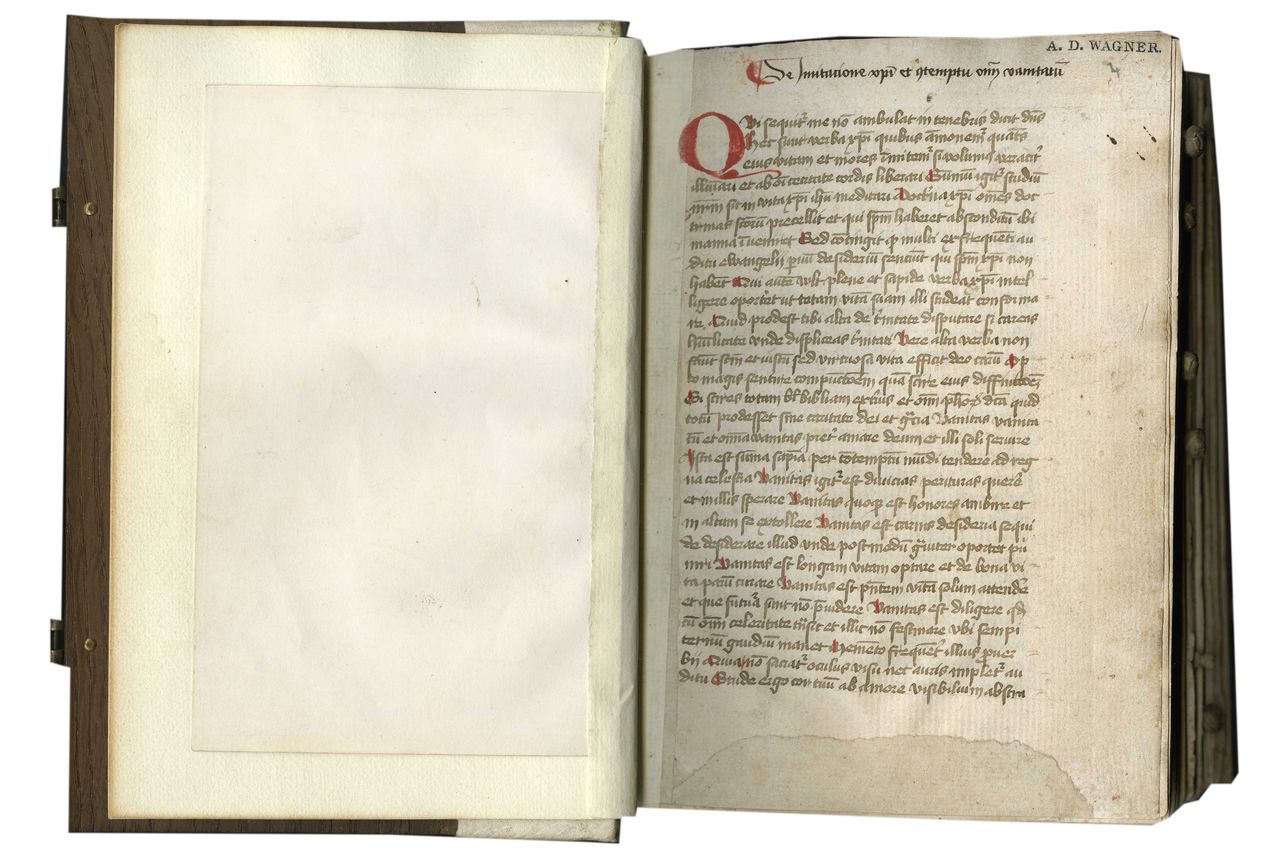 A. D. WAGNER.
De Imitacione xpi et qtemptu oīm vanitatū
Qvi sequit' me nō ambulat in tenebris dicit dn̄s
Hec sunt verba xp̄i quibus āmonem' quat
eius vitam et mores imitem' si volum' veracit'
illūari et ab oī cecitate cordis liberari Sūmū igit' studiū
nr̄m sit in vita xp̄i ihū meditari Doct'na xp̄i om̄es doc
trinas sctorū precellit et qui spm̄ haberet absconditū ibi
manna īveniret Sed cōtingit q multi ex frequēti au
ditu ewangelii parvū desideriū senciūt qui spm̄ xp̄i non
habēt Qui autē vult plene et sapide verba xp̄i intel
ligere oportet ut totam vitā suam illi studeat conforma
re Quid prodest tibi alta de t'nitate disputare si careas
hūilitate vnde displiceas t'nitati Vere alta verba non
faciūt scm̄ et iustū sed virtuosa vita efficit deo carū Op
to magis sentire compūctōem quā scire eius diffinicōeȝ
Si scires totam bibliam et om̄ ph'oꝝ dicta quid
totū prodesset sine caritate dei et gr̄cia Vanitas vanita
tū et omnia vanitas pret' amare deum et illi soli servire
Ista est sūma sapīa per cōtemptū mūdi tendere ad reg
na celestia Vanitas igit' est divicias perituras querer'
et in illis sperare Vanitas quoq est honores ambire et
in altum se extollere Vanitas est carnis desideria sequi
et desiderare illud vnde postmodū g'viter oportet pū
niri Vanitas est longam vitam optare et de bona vi
ta parū curare Vanitas est pn̄tem vitā solum attendēr
et que futura sunt nō p'videre Vanitas est diligere qd
cū om̄i celeritate t'nsit et illic nō festinare vbi sempi
ternū gaudiū manet Memento frequēt' illius prover
bij Quia nō saciat' oculus visu nec auris implet' au
ditu Stude ergo cor tuū ab amore visibilium abstra